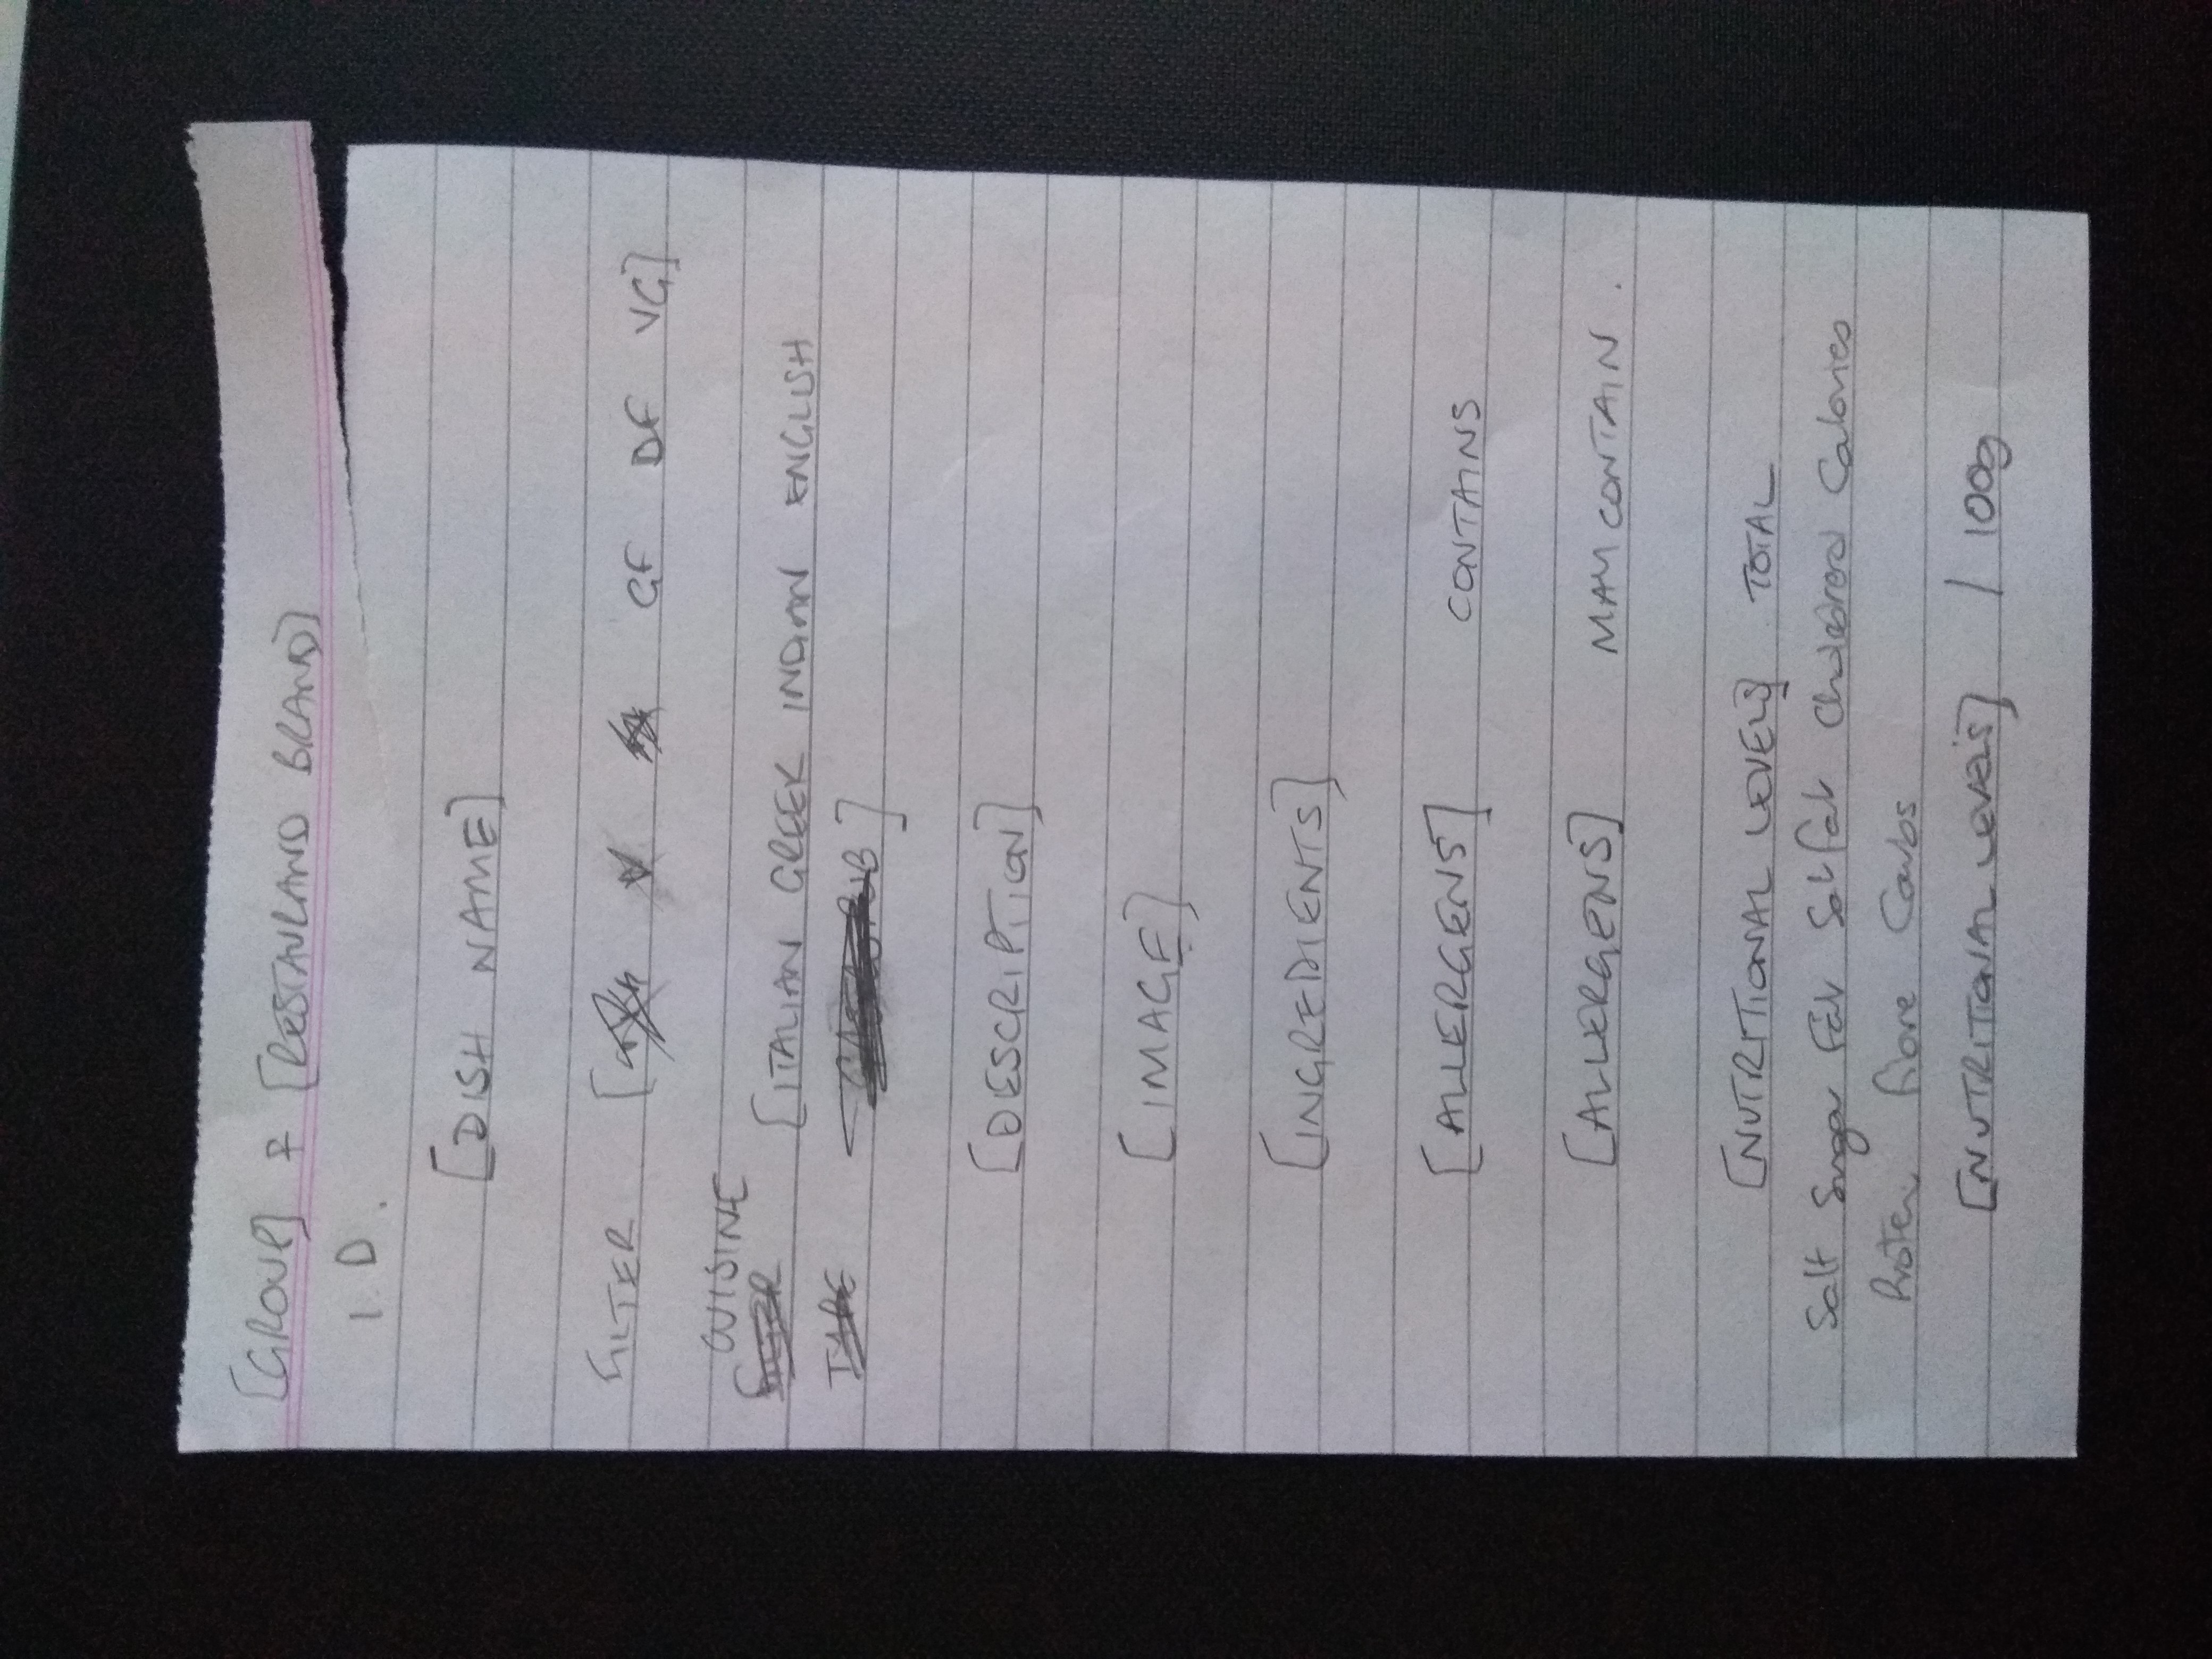 [GROUP] + [RESTAURAND BRAND]
I.D.
[DISH NAME]
FILTER [ V GF DF VG]
CUISINE [ITALIAN GREEK INDIAN ENGLISH
]
[DESCRIPTION]
[IMAGE]
[INGREDIENTS]
[ALLERGENS] CONTAINS
[ALLERGENS] MAY CONTAIN.
[NUTRITIONAL LEVELS] TOTAL
Salt Sugar Fat Sat fat Cholesterol Calories
Protein Fibre Carbs
[NUTRITIONAL LEVELS] / 100g